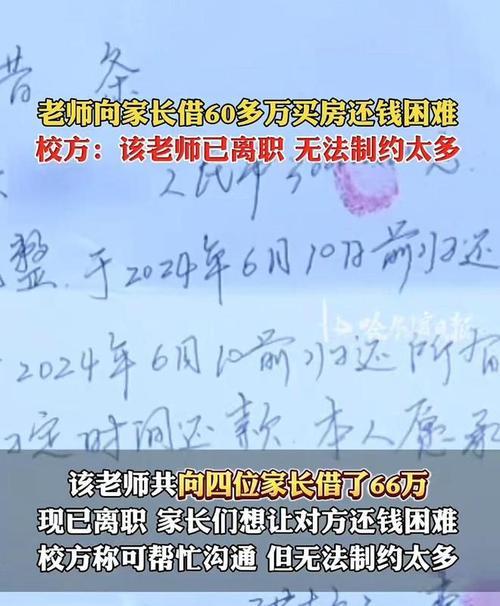 借条
老师向家长借60多万买房还钱困难
校方：该老师已离职 无法制约太多
人民币
整.于2024年6月10日前归还
哈尔滨日报
2024年6月10前归还所有
定时间还款.本人愿承
该老师共向四位家长借了66万
现已离职 家长们想让对方还钱困难
校方称可帮忙沟通 但无法制约太多